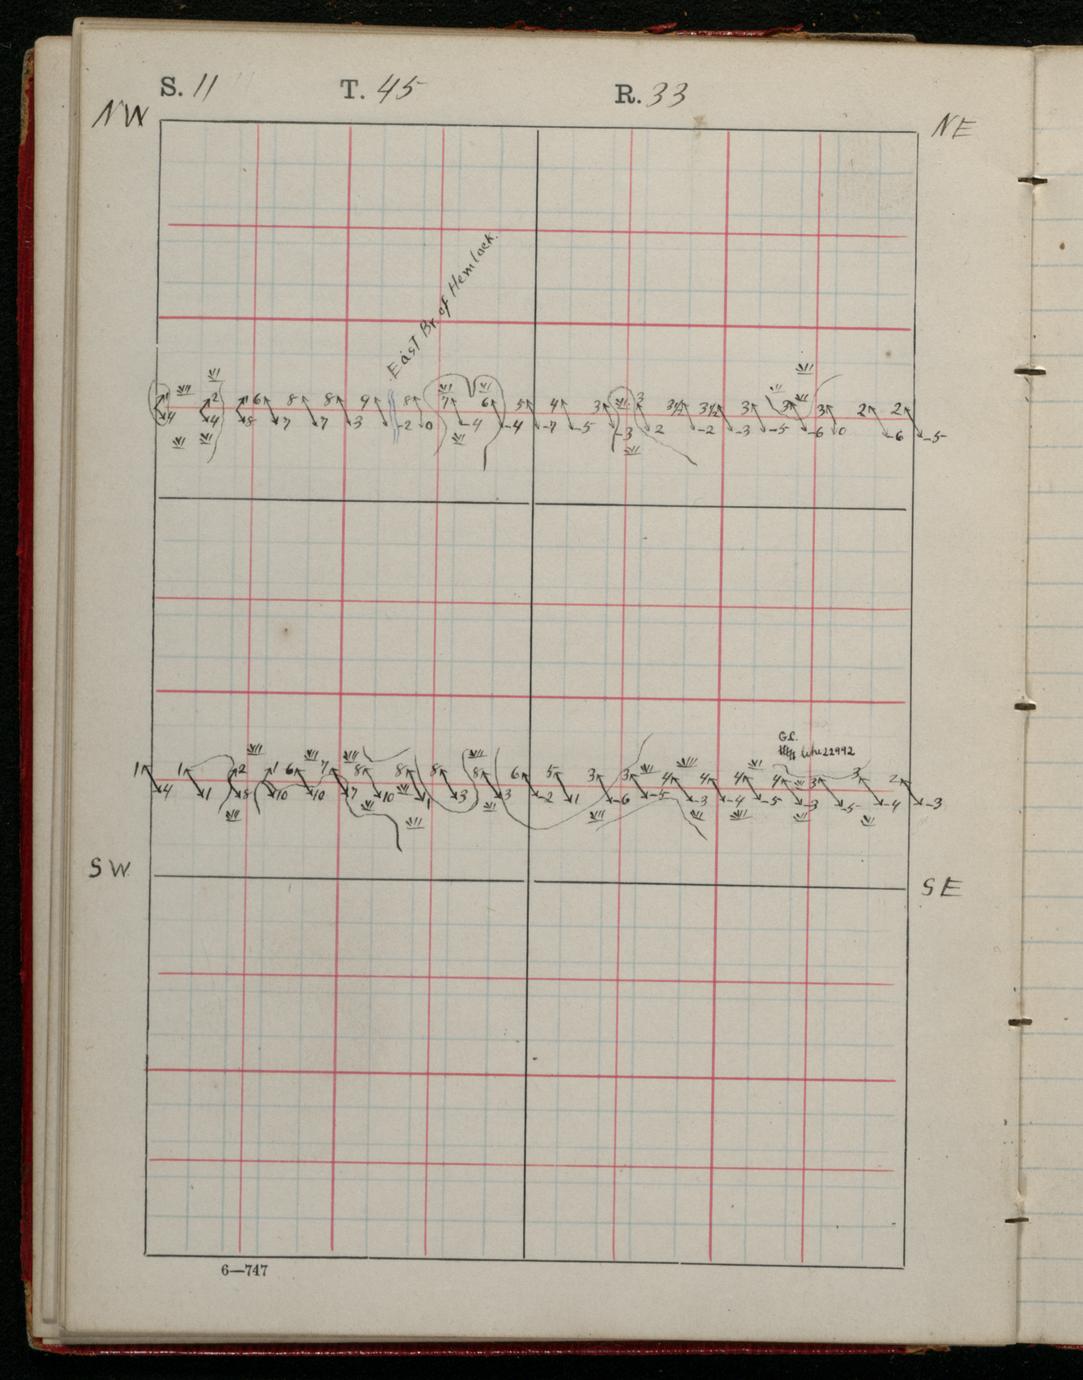 S. 11 T. 45 R. 33
NW NE
East Br. of Hemlock.
2 6 8 8 9 8 7 6 5 4 3 3 3½ 3½ 3 3 3 2 2
4 4 8 7 7 3 -2 0 -4 -4 -7 -5 -3 2 -2 -3 -5 -6 0 -6 -5
G.S.
1 1 2 1 6 7 8 8 8 8 6 5 3 3 4 4 4 4 3 3 2
4 1 8 10 10 7 10 1 3 3 -2 1 -6 -5 -3 -4 -5 -3 -5 -4 -3
SW SE
6—747